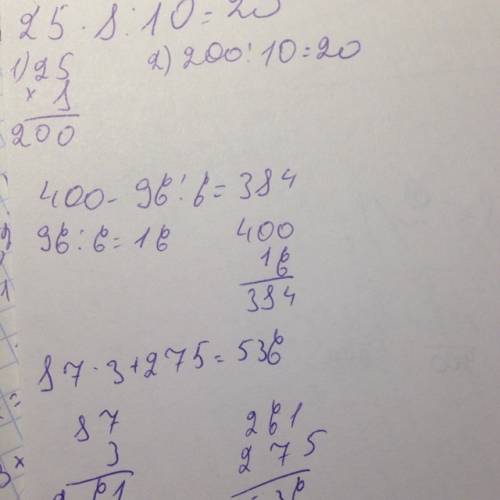 25 · 8 : 10 = 20
1) 25
× 8
200
2) 200 : 10 = 20
400 - 96 : 6 = 384
96 : 6 = 16
400
16
384
87 · 3 + 275 = 536
87
3
261
261
275
536